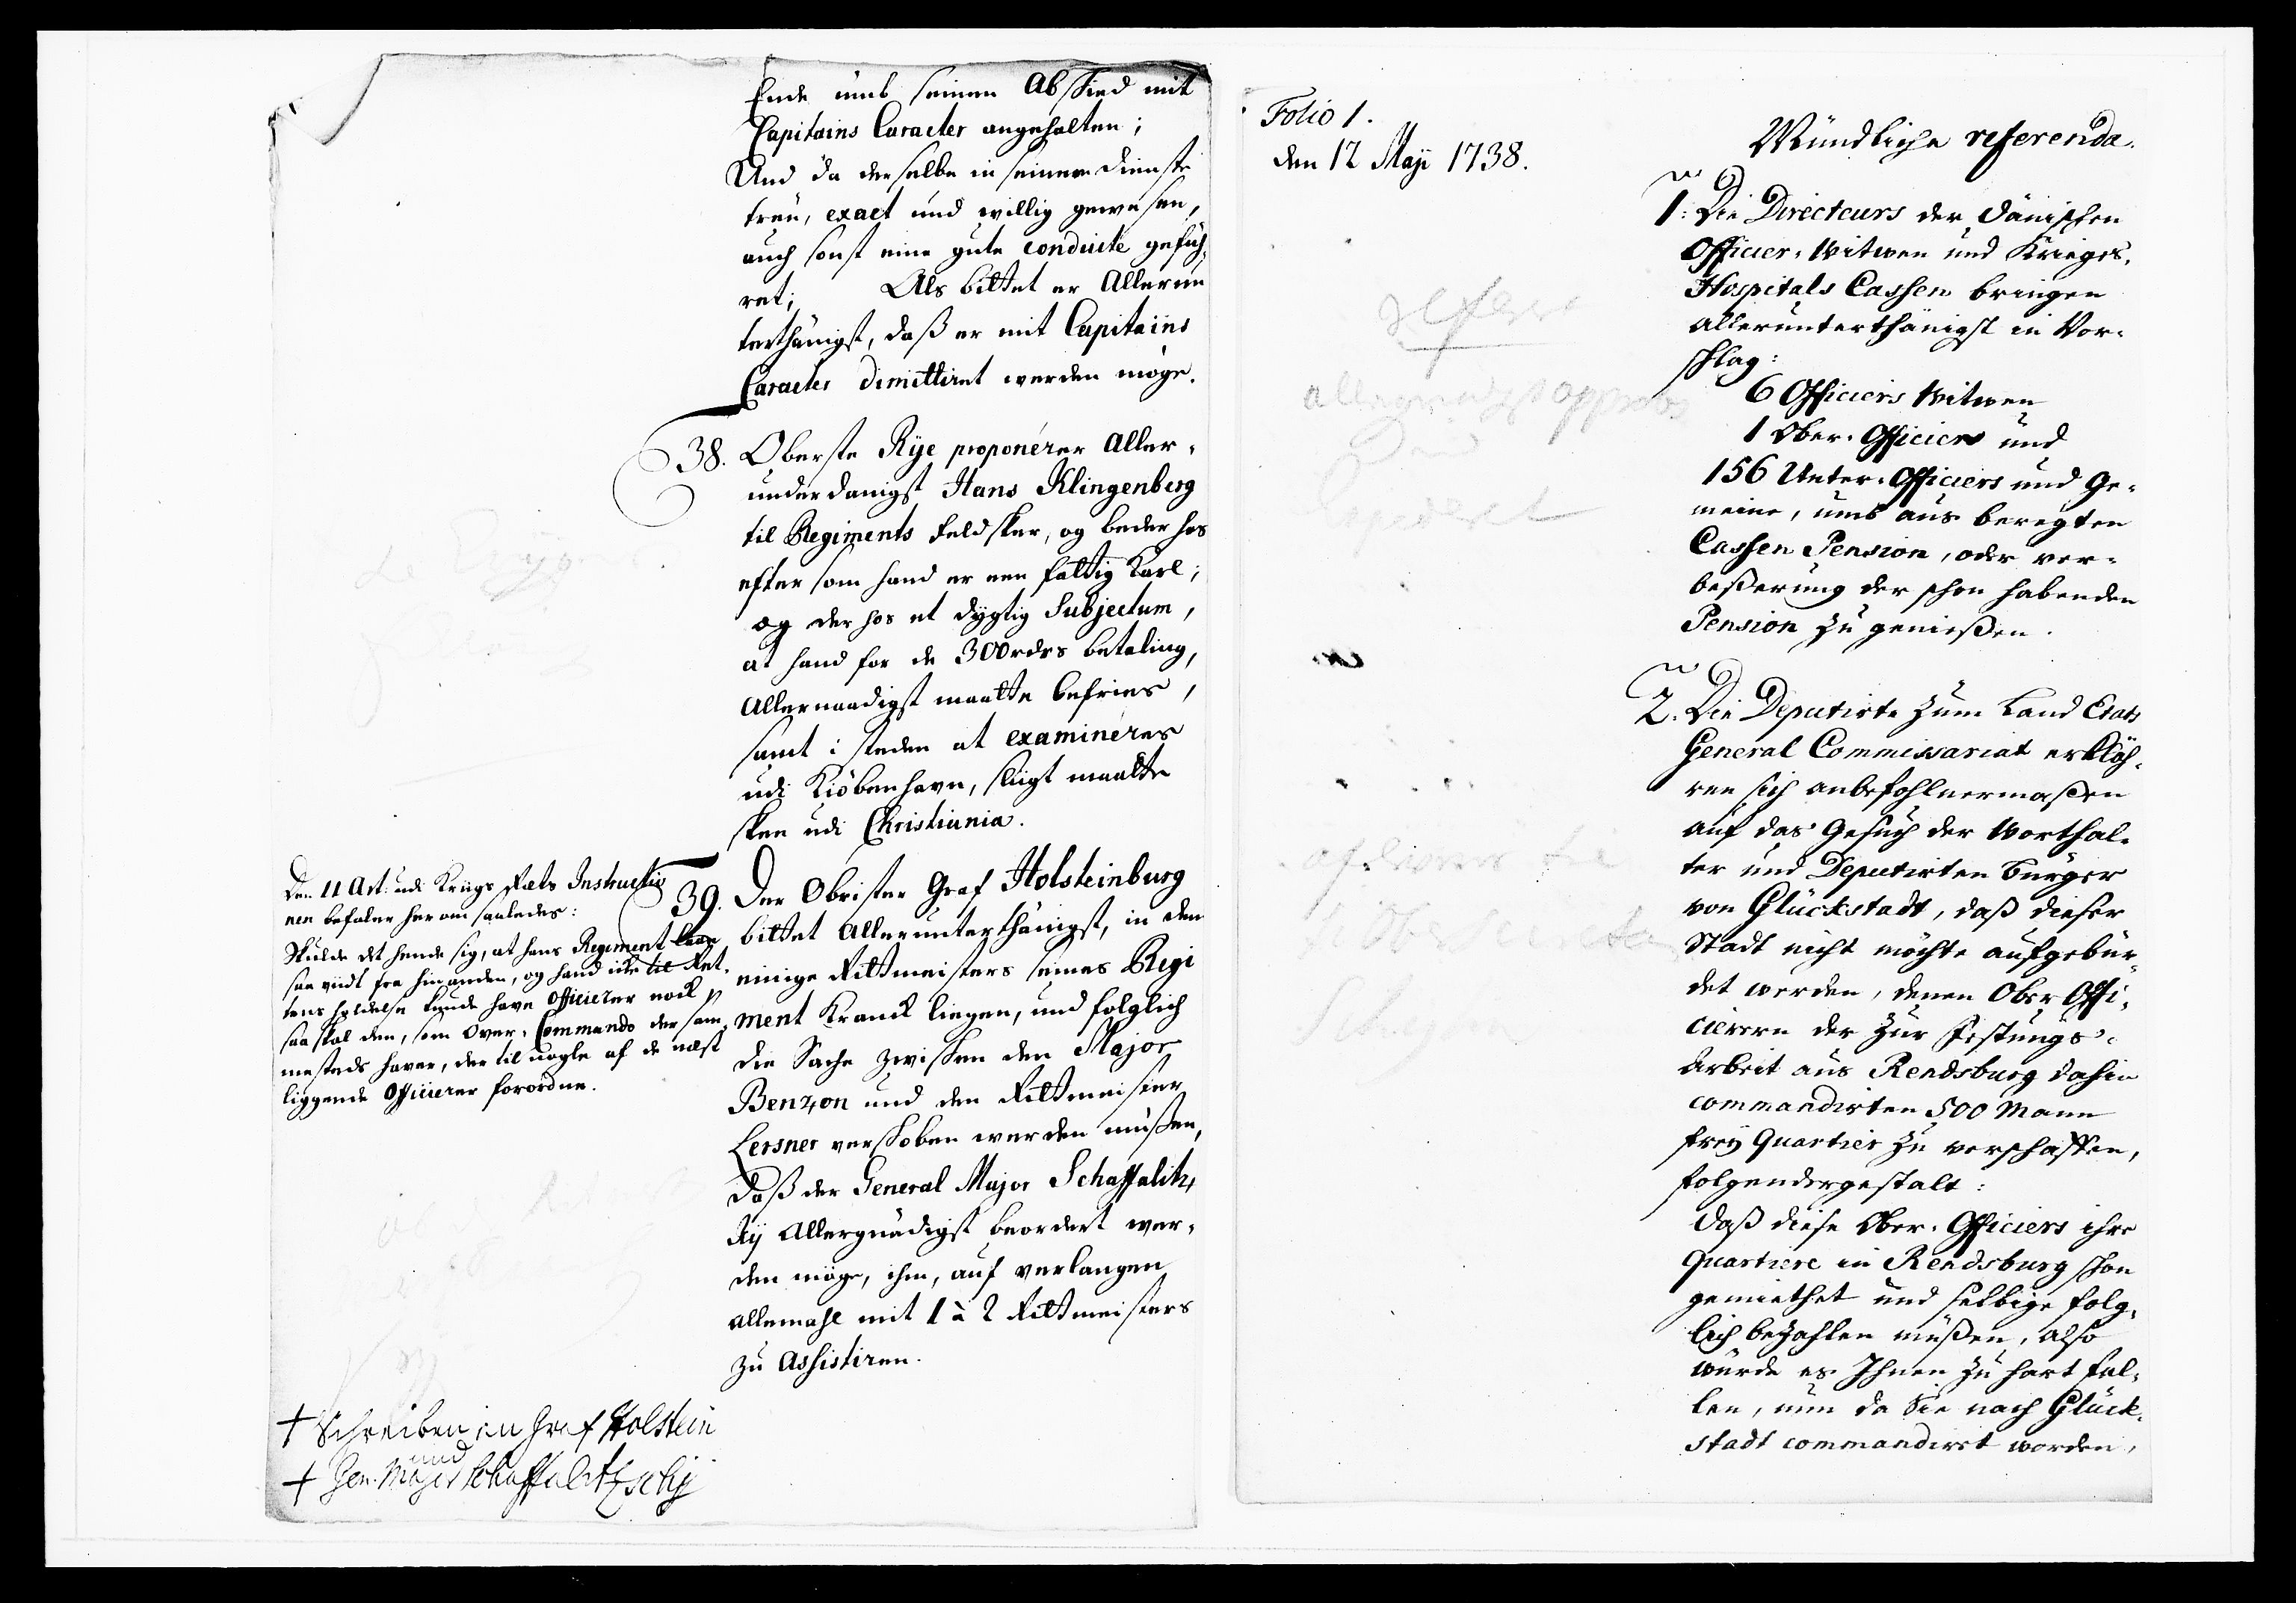 Ende umb seinen Abschied mit
Capitains Caracter angehalten;
Und da derselbe in seinem Dienste
treu, exact und willig gewesen,
auch sonst eine gute conduite gefüh¬
ret; Als bittet er Allerun
terthänigst, daß er mit Capitains
Caracter dimittiret werden möge.
38. Oberste Rye proponerer Aller¬
underdanigst Hans Klingenberg
til Regiments Feldsker, og beder hos
eftersom hand er een fattig Karl;
og der hos et dygtig Subjectum,
at hand for de 300 rdrs betaling,
Allernaadigst maatte befries,
samt i steden at examineres
udi Kiöbenhavn, sligt maatte
skee udi Christiania.
Den 11 Art: udi Krigs Rets Instructio
nen befaler herom saaledes:
Skulde det hende sig, at hans Regiment laae
saa viidt fra hinanden, og hand icke til Ret¬
tens holdelse kunde have Officierer nock,
saa skal den, som Over-Commando der sam¬
mesteds haver, der til nogle af de næst
liggende Officierer forordne.
39. Der Obrister Graf Holsteinburg
bittet Allerunterthänigst, in dem
einige Rittmeisters seines Regi
ment Kranck liegen, und folglich
die Sache zwischen den Major
Benzon und den Rittmeister
Lersner verschoben werden müßen,
daß der General Major Schaffalitz,
ky Allergnädigst beordert wer¬
den möge, ihm, auf verlangen
allemahl mit 1 à 2 Rittmeisters
zu Assistiren.
+ Schreiben an Graf Holstein
und
+ Gen. Major Schaffalitzschy
Folio 1.
den 12 Maji 1738.
Mündliche referenda.
1. Die Directeurs der Dänischen
Officier-Witwen und Krieges-
Hospitals Cassen bringen
allerunterthänigst in Vor-
schlag:
6 Officiers Witwen
1 Ober-Officier und
156 Unter-Officiers und Ge-
meine, umb aus beregten
Cassen Pension, oder ver-
beßerung der schon habenden
Pension zu genießen.
allergnädigst approb
2. Die Deputirte zum Land Etats
General Commissariat erkläh-
ren sich anbefohlnermaßen
auf das Gesuch der Worthal-
ter und Deputirten Bürger
von Glückstadt, daß dieser
Stadt nicht möchte aufgebür-
det werden, denen Ober Offi-
cierern der zur Festungs-
Arbeit aus Rendsburg dahin
commandirten 500 Mann
frey Quartier zu verschaffen,
folgendergestalt:
Daß diese Ober-Officiers ihre
Quartiere in Rendsburg schon
gemiethet und selbige folg-
lich bezahlen müßen, also
würde es Ihnen zu hart fal-
len, nun da Sie nach Glück-
stadt commandirt worden,